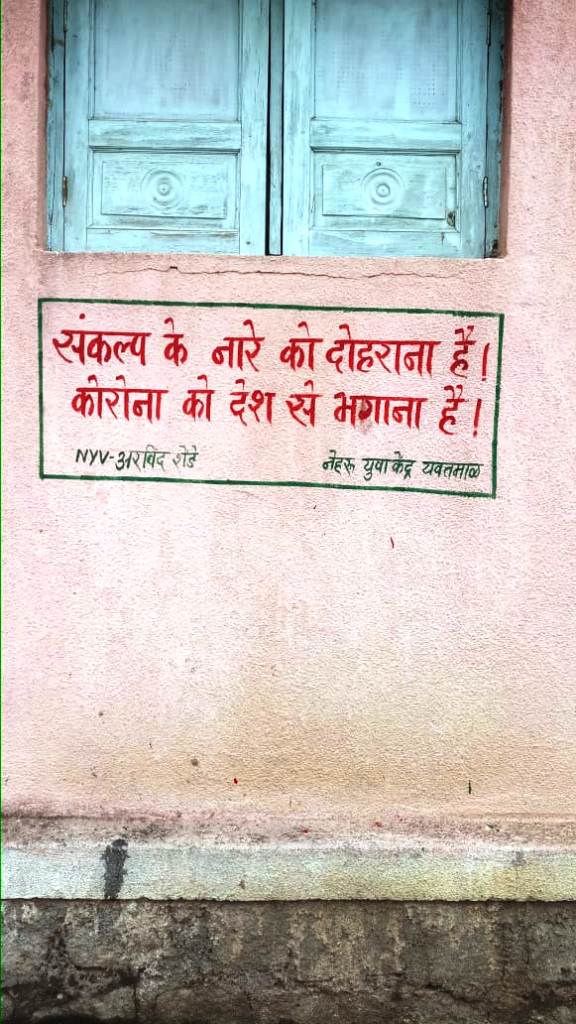 संकल्प के नारे को दोहराना है।
कोरोना को देश से भगाना है!
NYV-अरविंद शेडे नेहरू युवा केंद्र यवतमाळ